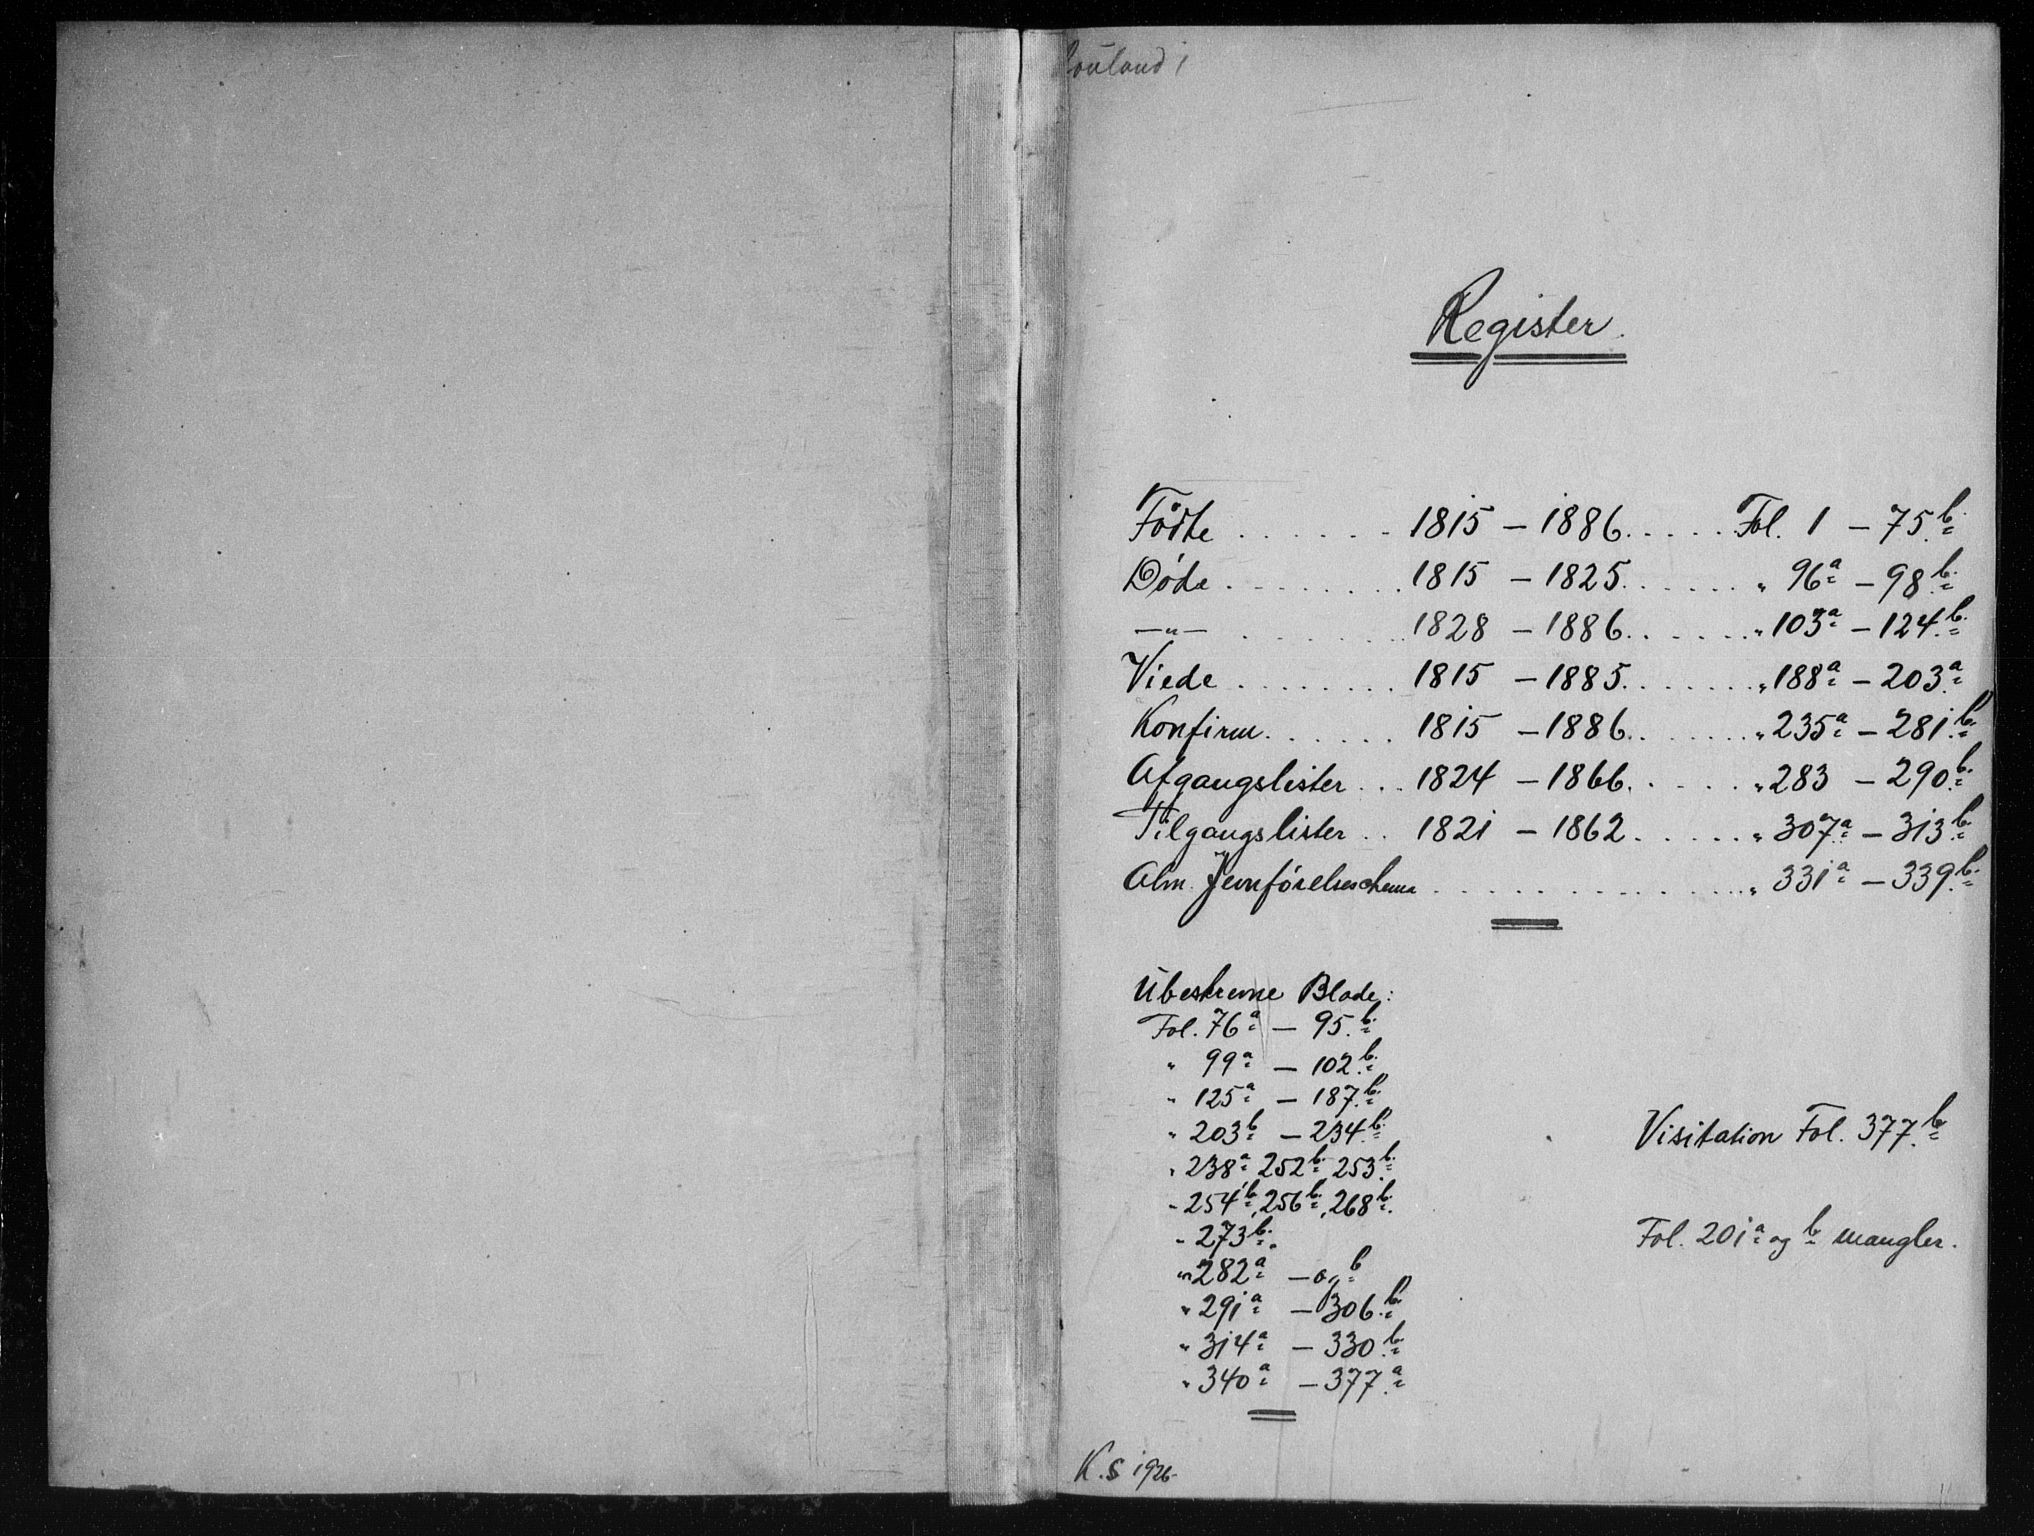 Rauland 1
Register.
Födte . . . . . . 1815 – 1886 . . . . . Fol. 1 – 75 b.
Döde . . . . . . . . 1815 – 1825 . . . . . . „ 96 a – 98 b.
—„— . . . . . . . 1828 – 1886 . . . . . . „ 103 a – 124 b.
Viede . . . . . . . . 1815 – 1885 . . . . . . . „ 188 a – 203 a
Konfirm. . . . . . . 1815 – 1886 . . . . . . . „ 235 a – 281 b.
Afgangslister . . . 1824 – 1866 . . . . . „ 283 – 290 b.
Tilgangslister . . 1821 – 1862 . . . . . „ 307 a – 313 b.
Alm. Jevnförelseschema . . . . . . . . . . . . . . „ 331 a – 339 b.
Ubeskrevne Blade:
Fol. 76 a – 95 b.
„ 99 a – 102 b.
„ 125 a – 187 b.
„ 203 b – 234 b.
„ 238 a 252 b 253 b.
„ 254 b, 256 b, 268 b.
„ 273 b.
„ 282 a – og b
„ 291 a – 306 b.
„ 314 a – 330 b.
„ 340 a – 377 a
Visitation Fol. 377 b
Fol. 201 a og b mangler.
K.S 1926